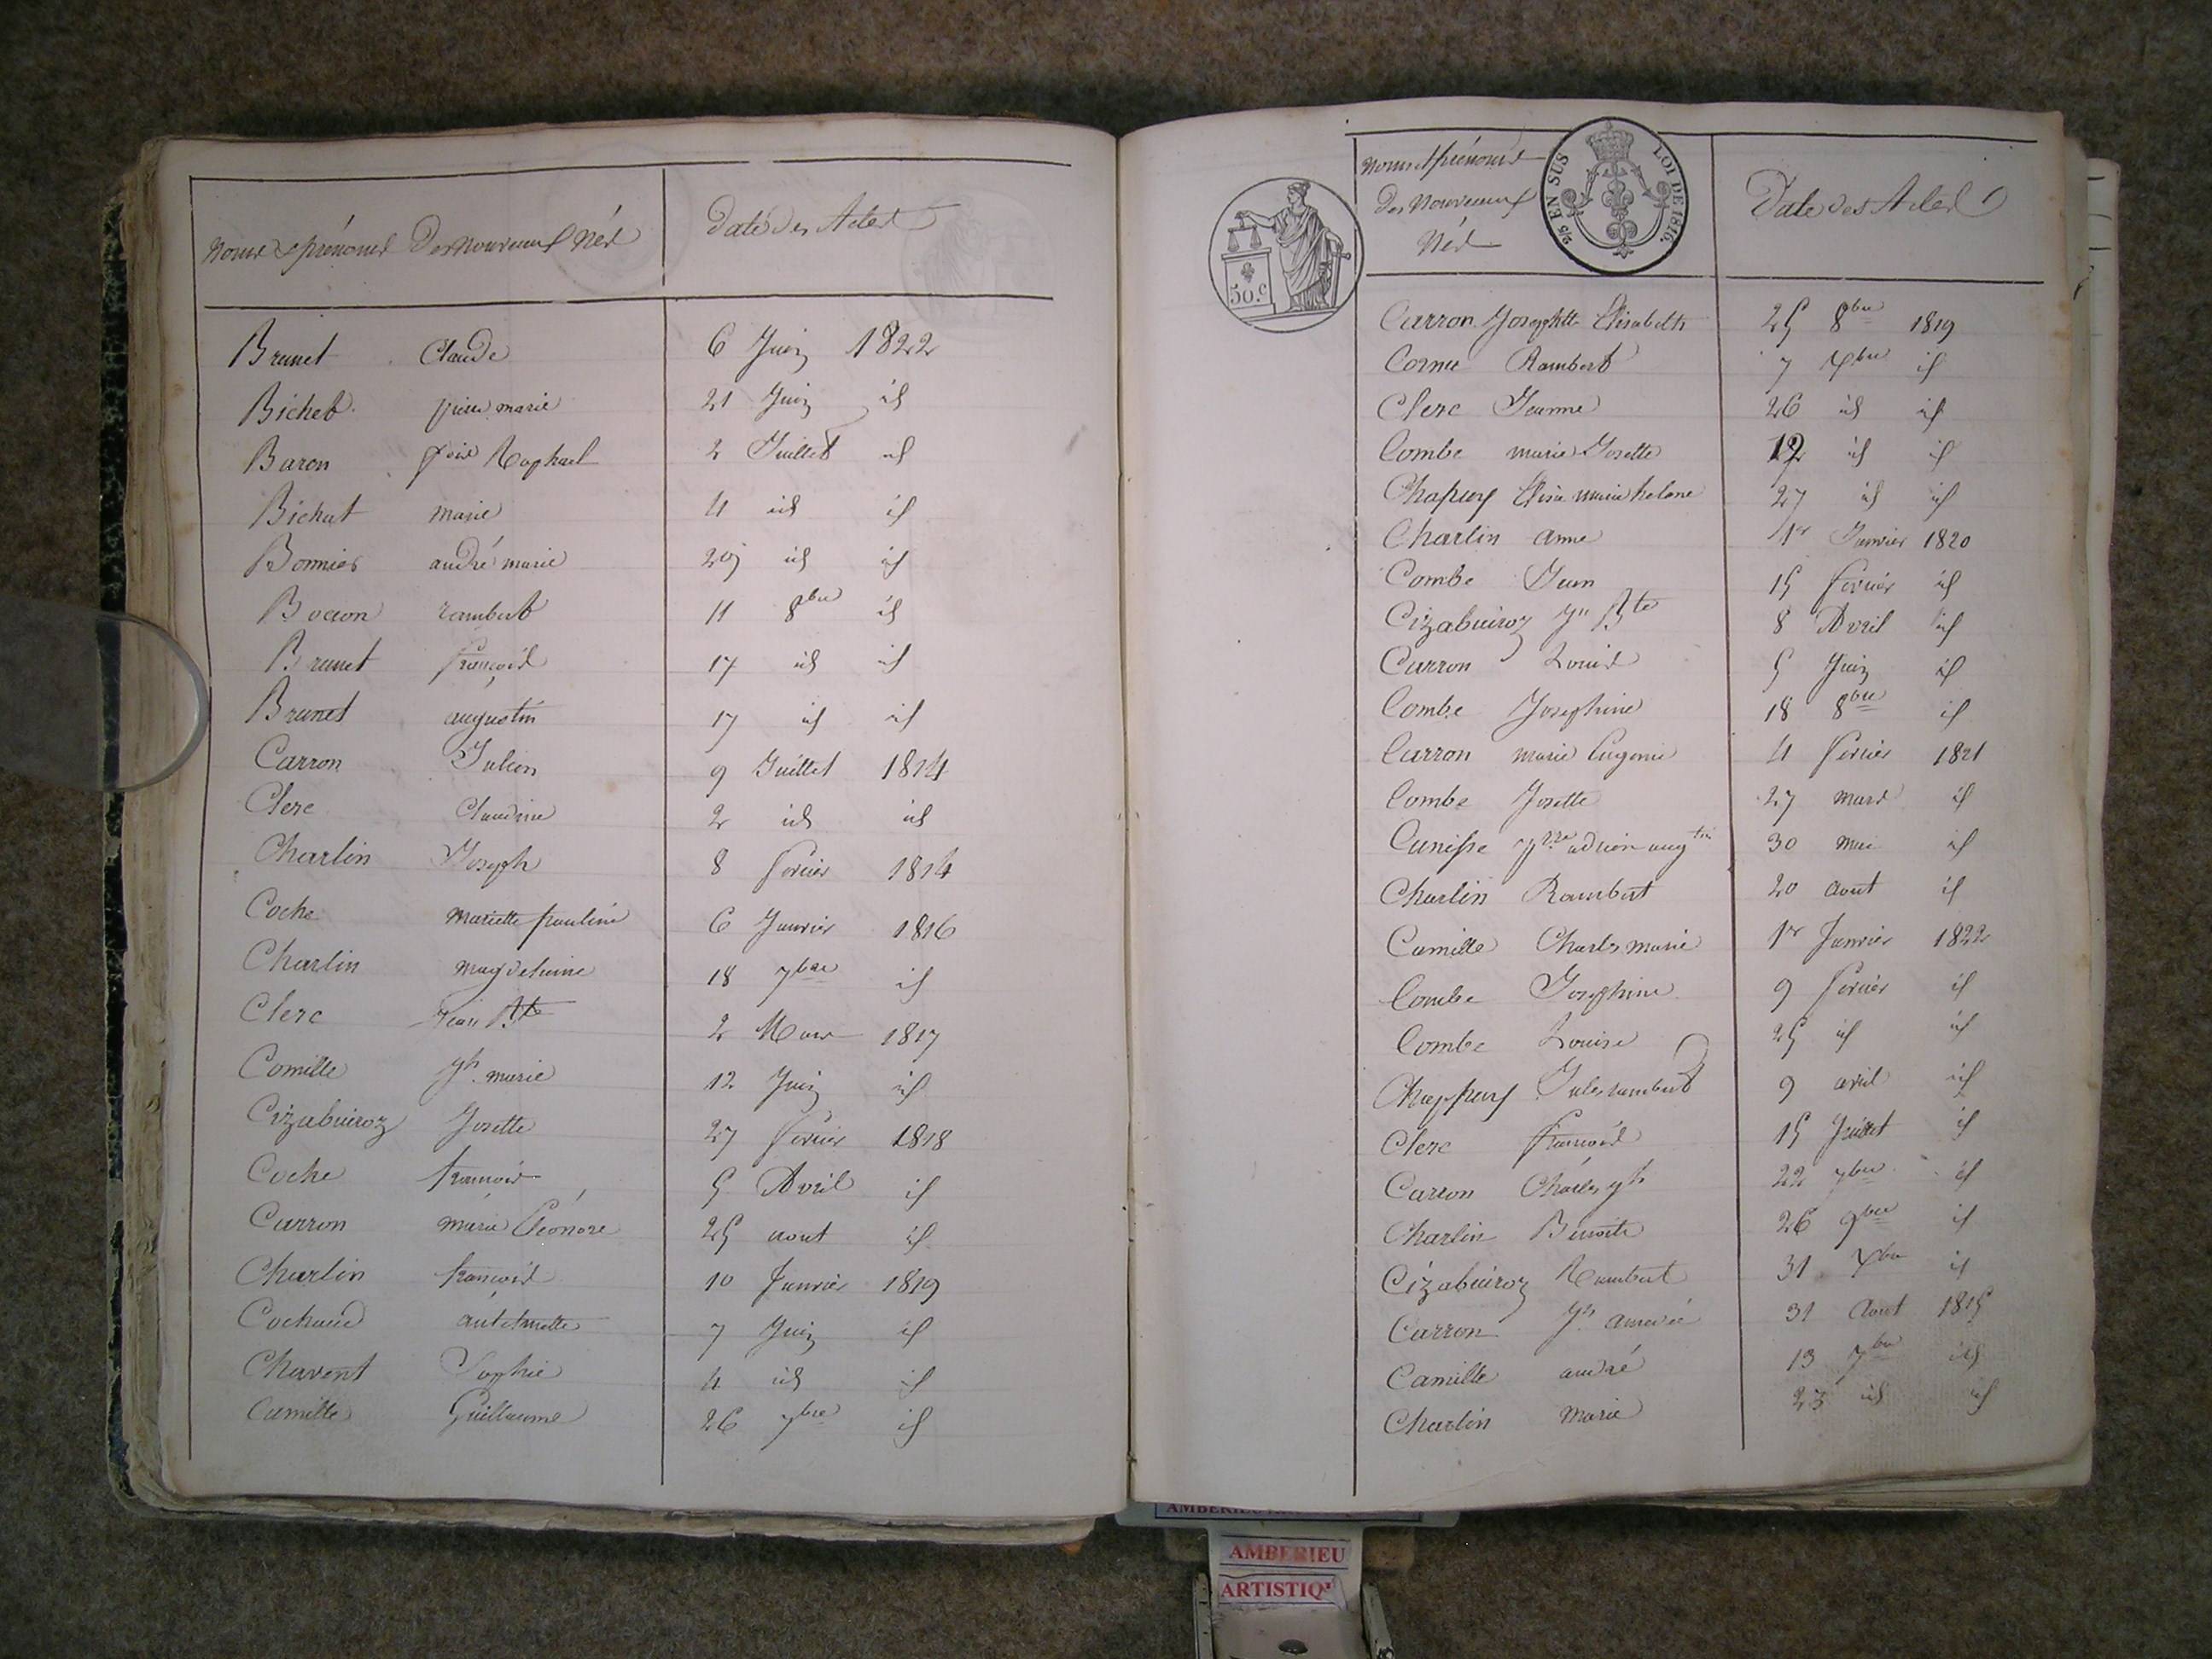 Noms et prénoms Des Nouveaux Nés
Date Des Actes
Brunet Claude 6 Juin 1822
Bichet pierre marie 21 Juin id
Baron fois Raphael 2 Juillet id
Bichat marie 4 id id
Bonnier andré marie 29 id id
Bocion rambert 11 8bre id
Brunet françois 17 id id
Brunet augustin 17 id id
Carron Julien 9 Juillet 1814
Clerc Claudine 2 id id
Charlin Joseph 8 fevrier 1814
Coche Mariette pauline 6 Janvier 1816
Charlin magdelaine 18 7bre id
Clerc Jean Bte 2 Mars 1817
Camille jh marie 12 Juin id
Cizabuiroz Josette 27 fevrier 1818
Coche francois 5 Avril id
Carron marie Éléonore 25 aout id
Charlin françois 10 Janvier 1819
Cochaud antoinette 7 Juin id
Chavent Sophie 4 id id
Camille Guillaume 26 7bre id
50.c
Noms et prénoms
Des Nouveaux
Nés
2/5 EN SUS LOI DE 1816.
Date des Actes
Carron Josephtte Elisabeth 25 8bre 1819
Cornu Rambert 7 Xbre id
Clerc Jeanne 26 id id
Combe marie Josette 12 id id
Chapuy Elisa marie helene 27 id id
Charlin anne 1er Janvier 1820
Combe Jean 15 fevrier id
Cizabuiroz Jn Bte 8 Avril id
Carron Louis 5 Juin id
Combe Josephine 18 8bre id
Carron marie Eugenie 4 fevrier 1821
Combe Josette 27 mars id
Cunisse adrien augtin 30 mai id
Charlin Rambert 20 aout id
Camille Charles marie 1er Janvier 1822
Combe Josephine 9 fevrier id
Combe Louise 25 id id
Chappuy Jules rambert 9 avril id
Clerc françois 15 Juillet id
Carron Charles jh 22 7bre id
Charlin Benoite 26 9bre id
Cizabuiroz Rambert 31 Xbre id
Carron jh amedée 31 Aout 1815
Camille andré 13 7bre id
Charlin Marie 23 id id
AMBERIEU
AMBERIEU
ARTISTIQ